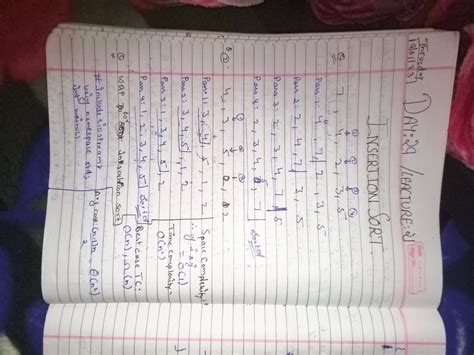 Thursday
19/01/23
DAY:29 / LECTURE:21
INSERTION SORT
7, 4, 2, 3, 5
Pass 1: 4, 7, 2, 3, 5
Pass 2: 2, 4, 7, 3, 5
Pass 3: 2, 3, 4, 7, 5
Pass 4: 2, 3, 4, 5, 7 sorted
4, 3, 5, 1, 2
Pass 1: 3, 4, 5, 1, 2
Pass 2: 3, 4, 5, 1, 2
Pass 3: 1, 3, 4, 5, 2
Pass 4: 1, 2, 3, 4, 5 sorted
Space Complexity:
= O(1)
Time complexity =
O(n²)
WAP to insertion sort.
Best case TC:
O(n), Ω(n)
# include <iostream>
using namespace std;
int main() {
Avg case
2
θ(n²)